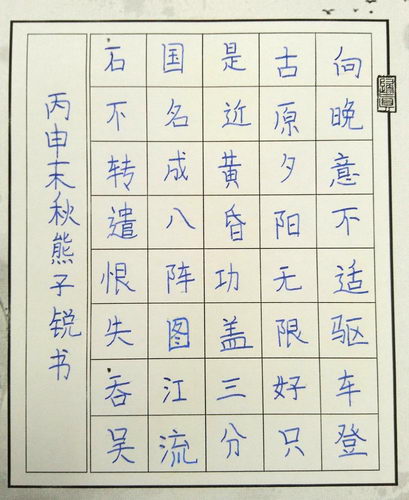 向晚意不适驱车登
古原夕阳无限好只
是近黄昏功盖三分
国名成八阵图江流
石不转遣恨失吞吴
丙申末秋熊子锐书